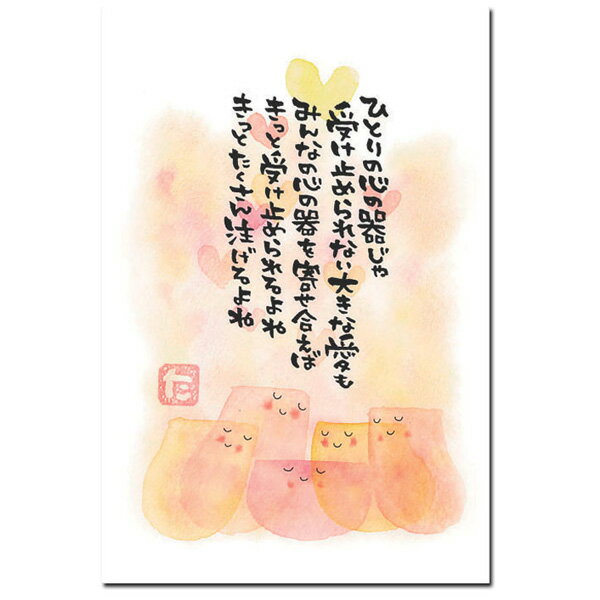 ひとりの心の器じゃ
受け止められない大きな愛も
みんなの心の器を寄せ合えば
きっと受け止められるよね
きっとたくさん注げるよね
た